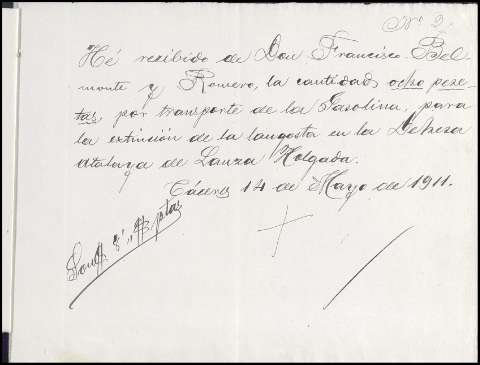 Nº 2.
Hé recibido de Don Francisco Bel-
monte y Romero, la cantidad, ocho pese-
tas por transporte de la Gasolina, para
la extinción de la langosta en la Dehesa
atalaya de Lanza Holgada.
Cáceres 14 de Mayo de 1911.
Son # 8'' # ptas